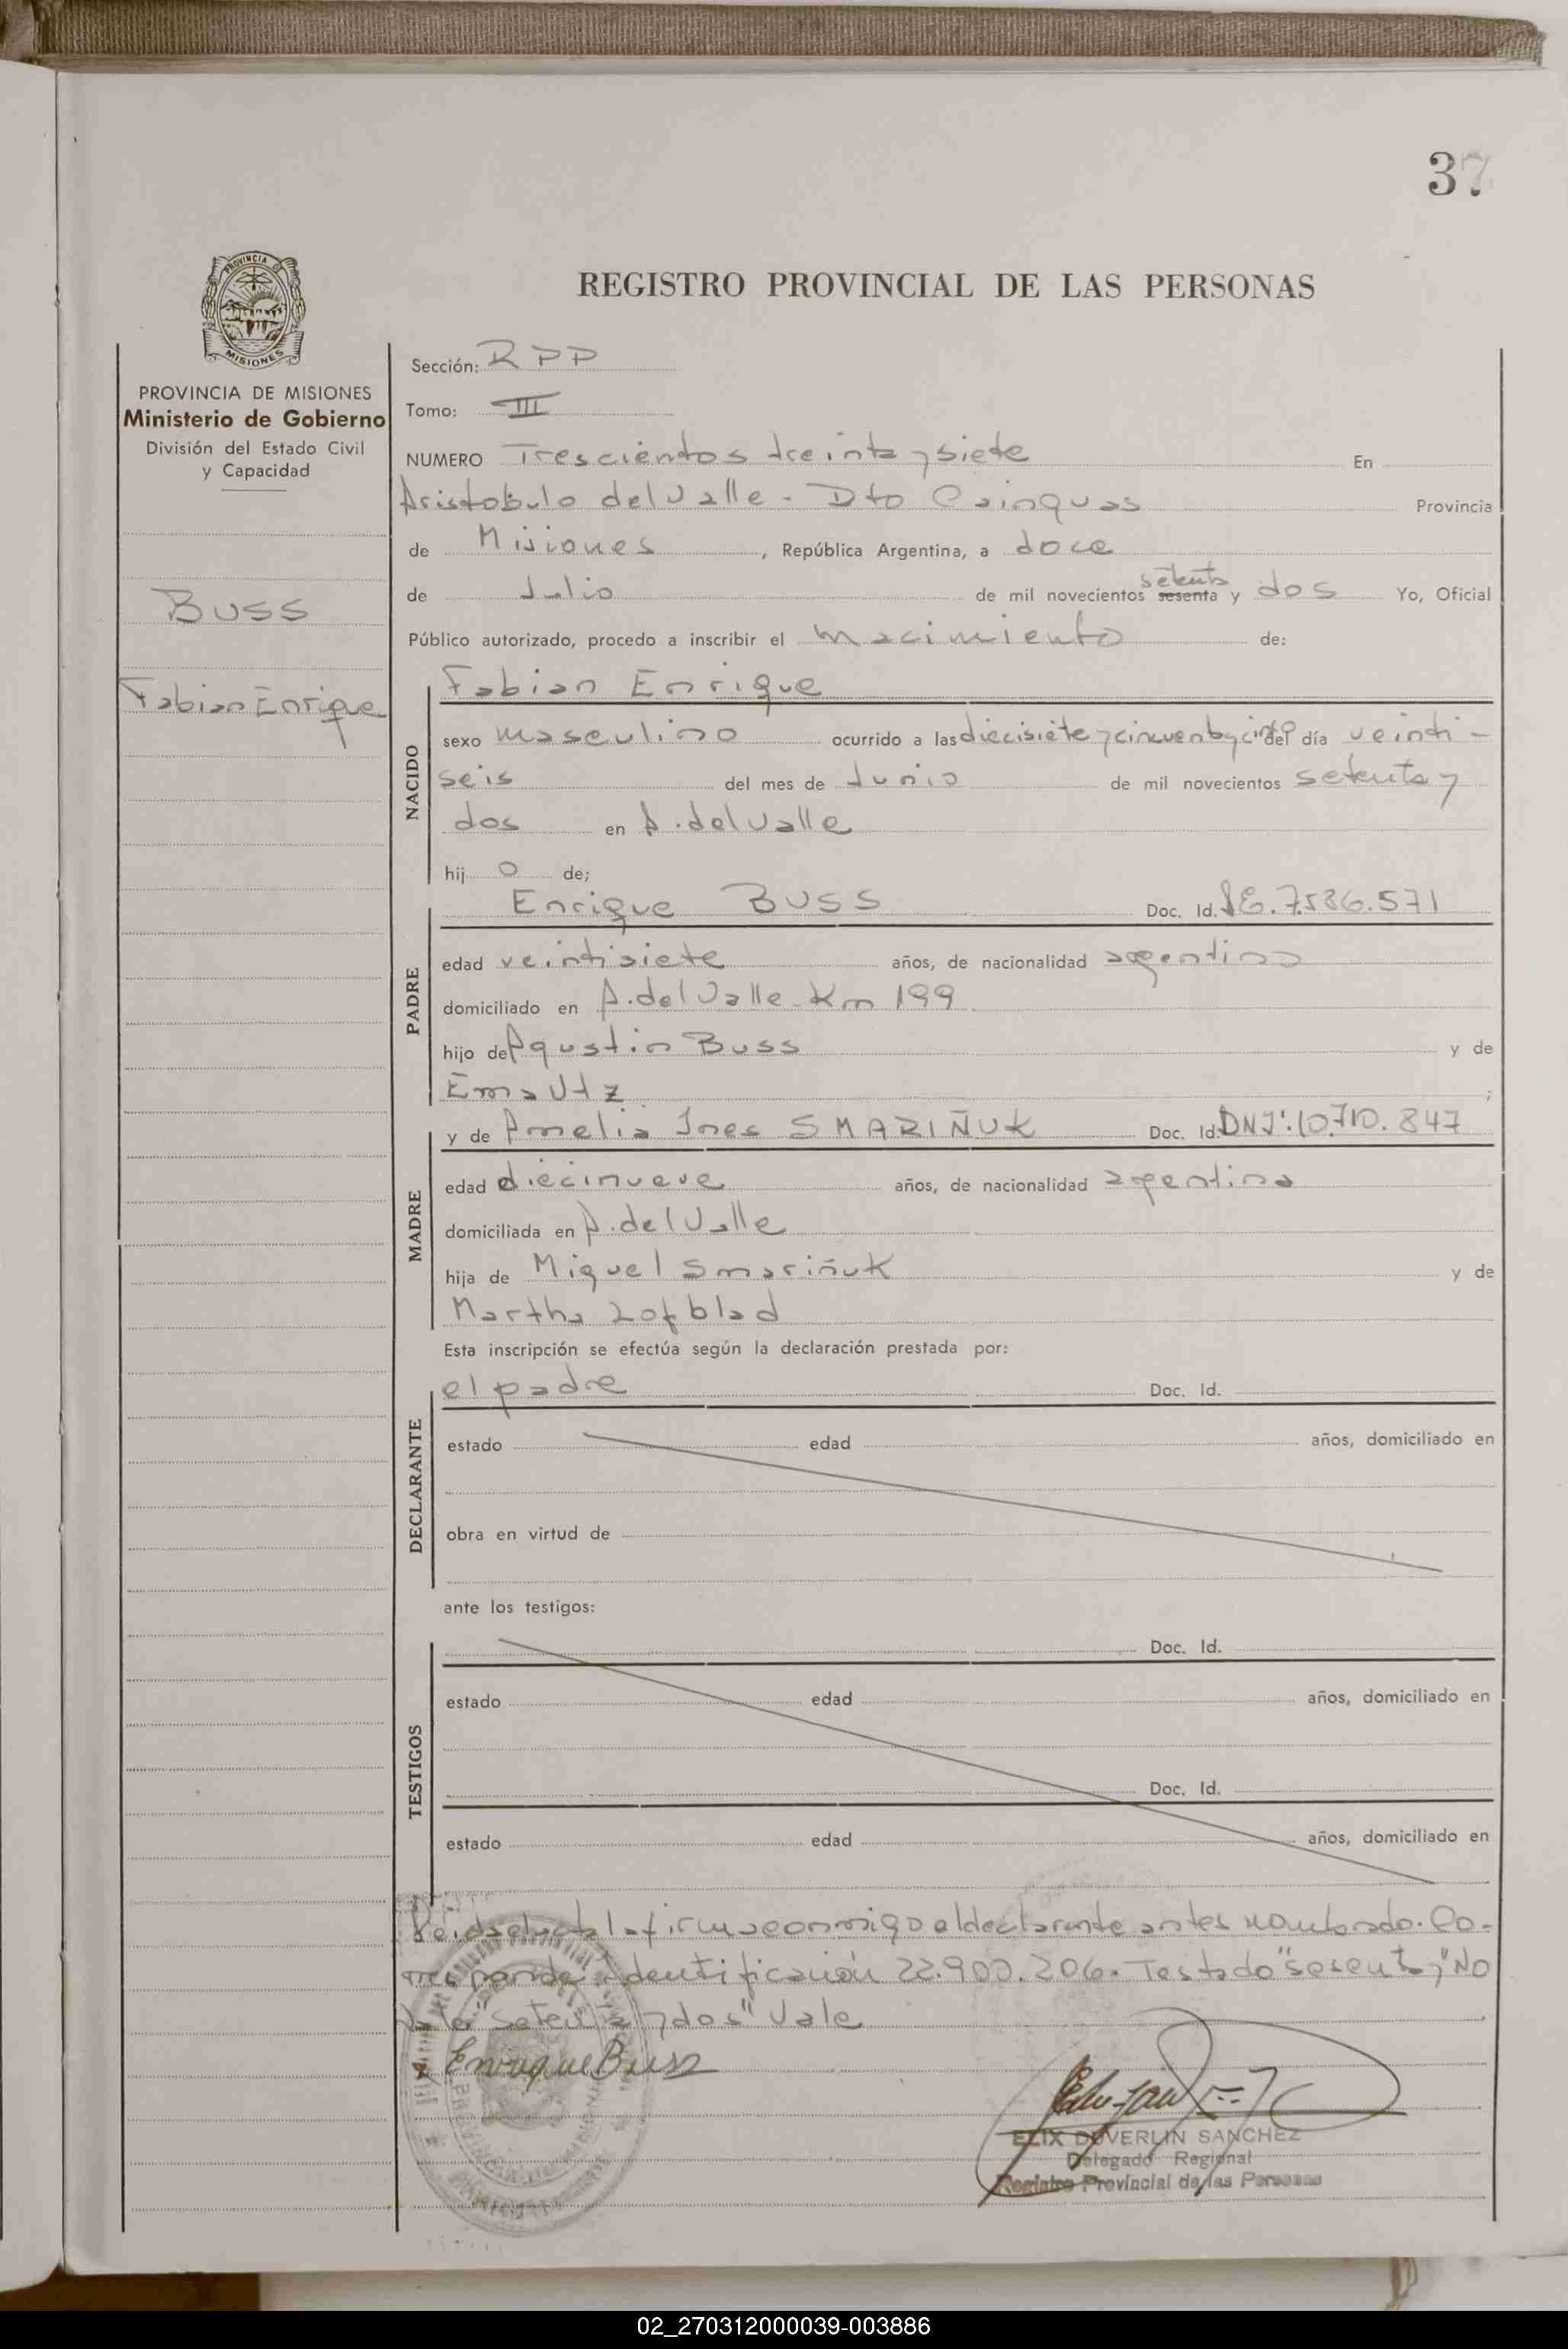 37
PROVINCIA DE MISIONES
Ministerio de Gobierno
División del Estado Civil
y Capacidad
BUSS
Fabian Enrique
REGISTRO PROVINCIAL DE LAS PERSONAS
Sección: RPP
Tomo: III
NUMERO Trescientos treinta y siete En
Aristobulo del Valle - Dto Cainguas Provincia
de Misiones, República Argentina, a doce
setenta
de Julio de mil novecientos sesenta y dos Yo, Oficial
Público autorizado, procedo a inscribir el nacimiento de:
NACIDO
Fabian Enrique
sexo masculino ocurrido a las diecisiete y cincuenta y cinco del día veinti-
seis del mes de Junio de mil novecientos setenta y
dos en A. del Valle
hijo de;
PADRE
Enrique BUSS Doc. Id. LE. 7.586.571
edad veintisiete años, de nacionalidad argentino
domiciliado en A. del Valle - Km 199
hijo de Agustin Buss y de
Ema Utz ;
MADRE
y de Amelia Ines SMARIÑUK Doc. Id. DNI: 10.710.847
edad diecinueve años, de nacionalidad argentina
domiciliada en A. del Valle
hija de Miguel Smariñuk y de
Martha Lofblad
Esta inscripción se efectúa según la declaración prestada por:
DECLARANTE
el padre Doc. Id.
estado edad años, domiciliado en
obra en virtud de
ante los testigos:
TESTIGOS
Doc. Id.
estado edad años, domiciliado en
Doc. Id.
estado edad años, domiciliado en
Leida el acta la firma conmigo el declarante antes nombrado. Co-
rresponde identificación 22.900.206. Testado "sesenta y" No
vale "setenta y dos" Vale
Enrique Buss
ELIX DUVERLIN SANCHEZ
Delegado Regional
Registro Provincial de las Personas
02_270312000039-003886